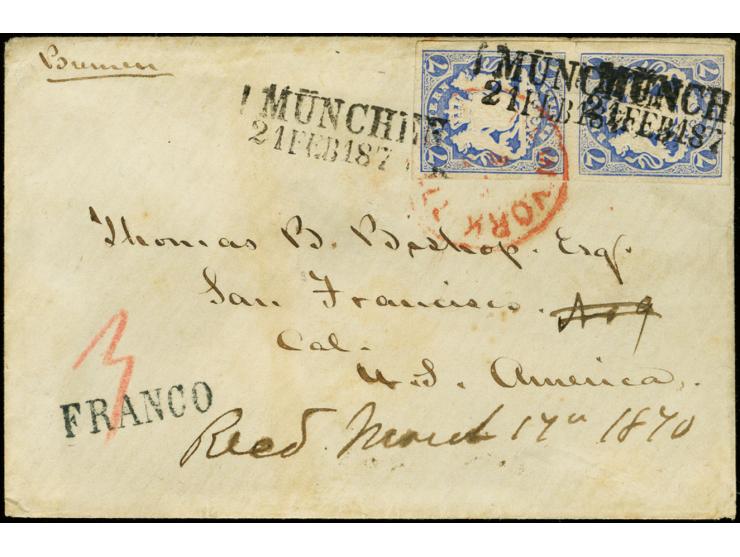 Bremen
I MÜNCHEN
21 FEB 187
7
7
I MÜNCH
21 FEB 187
7
7
MÜNCH
21 FEB 187
YORK
Thomas B. Bishop. Esq.
San Francisco.
Cal.
U.S. America.
3
FRANCO
Recd March 17th 1870